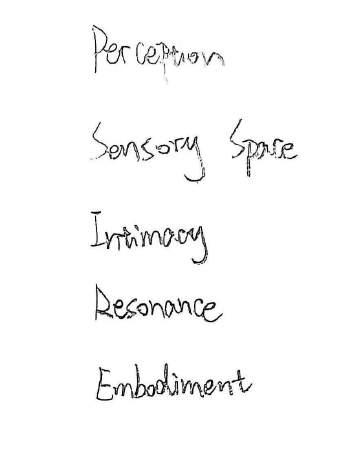 Perception
Sensory Space
Intimacy
Resonance
Embodiment